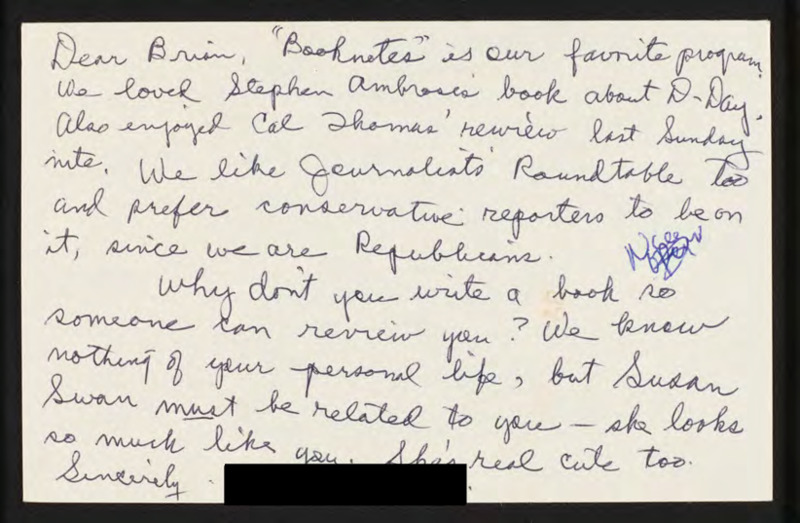 Dear Brian, "Booknotes" is our favorite program.
We loved Stephen Ambrose's book about D-Day.
Also enjoyed Cal Thomas' rewview last Sunday
nite. We like Journalists' Roundtable too
and prefer conservative reporters to be on
it, since we are Republicans.
Why don't you write a book so
someone can review you? We know
nothing of your personal life, but Susan
Swan must be related to you – she looks
so much like you. She's real cute too.
Sincerely